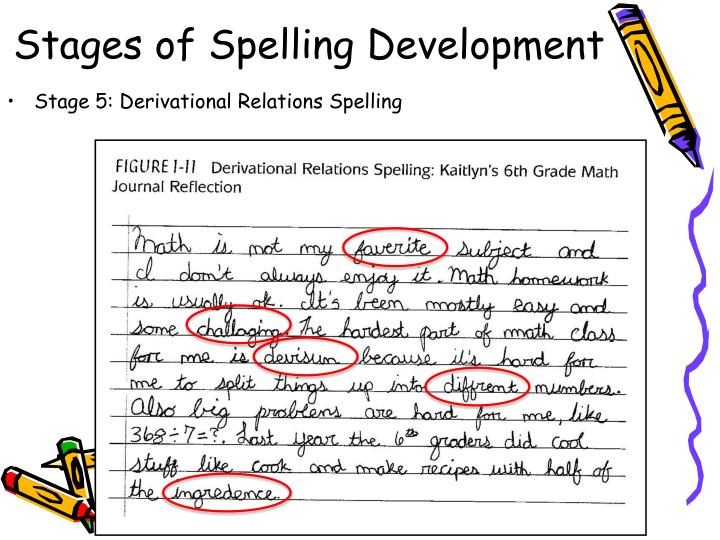 Stages of Spelling Development
• Stage 5: Derivational Relations Spelling
FIGURE 1-11 Derivational Relations Spelling: Kaitlyn's 6th Grade Math
Journal Reflection
Math is not my faverite subject and
I don't always enjoy it. Math homework
is usually ok. It's been mostly easy and
some challaging. The hardest part of math class
for me is devisun because it's hard for
me to split things up into diffrent numbers.
Also big problems are hard for me, like
368÷7=?. Last year the 6th graders did cool
stuff like cook and make recipes with half of
the ingredence.